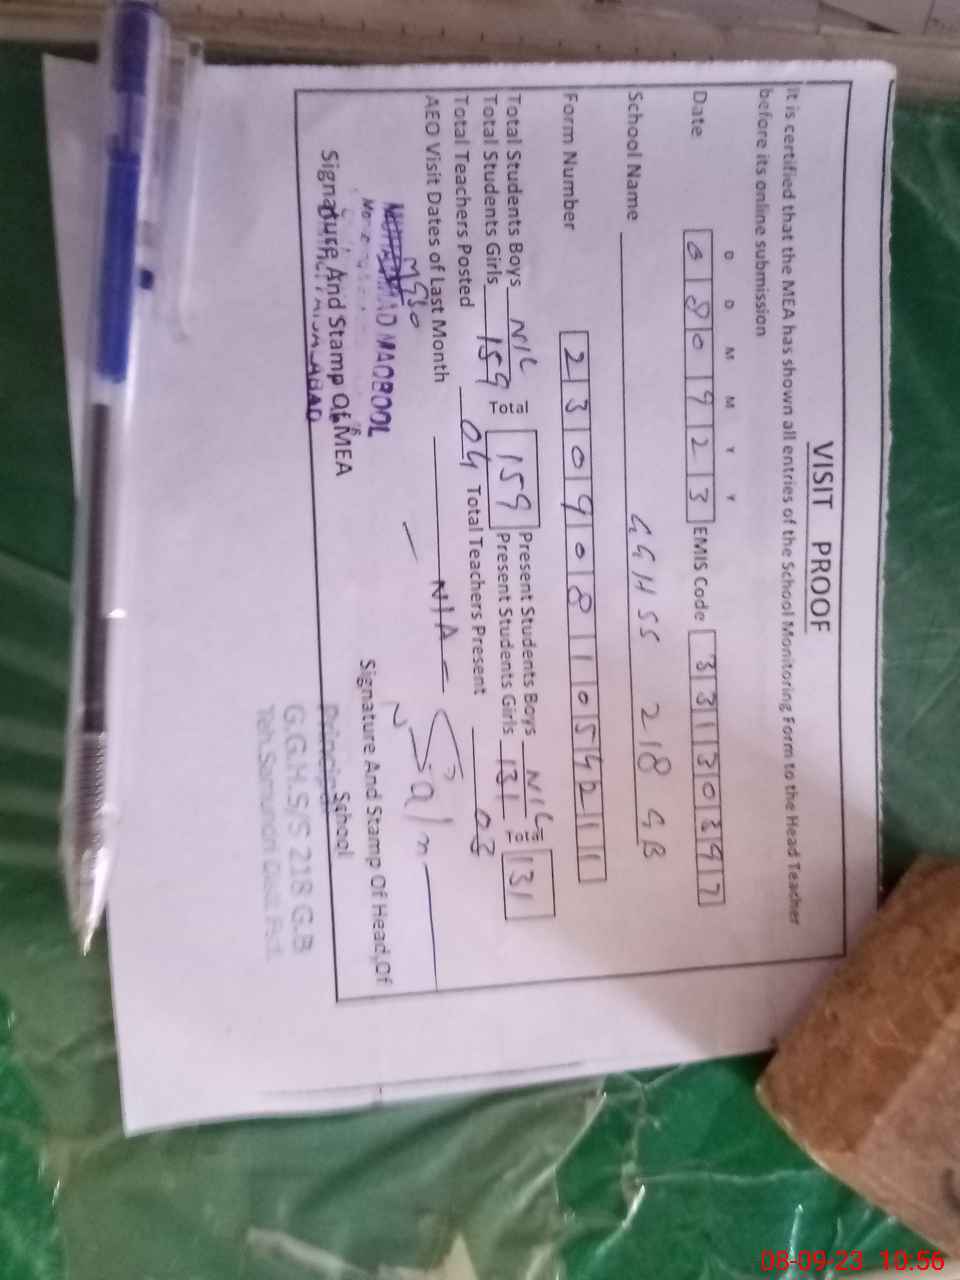 VISIT PROOF
It is certified that the MEA has shown all entries of the School Monitoring Form to the Head Teacher
before its online submission
D D M M Y Y
Date 080923 EMIS Code 33130397
School Name GGHSS 218 GB
Form Number 23090811054211
Total Students Boys NIL Present Students Boys NIL
Total Students Girls 159 159 Present Students Girls 131 131
Total Teachers Posted 04 Total Teachers Present 03
AEO Visit Dates of Last Month N/A
MAQBOOL
Signature And Stamp Of MEA
Signature And Stamp Of Head Of
School
Principal
G.G.H.S/S 218 G.B
08-09-23 10:56